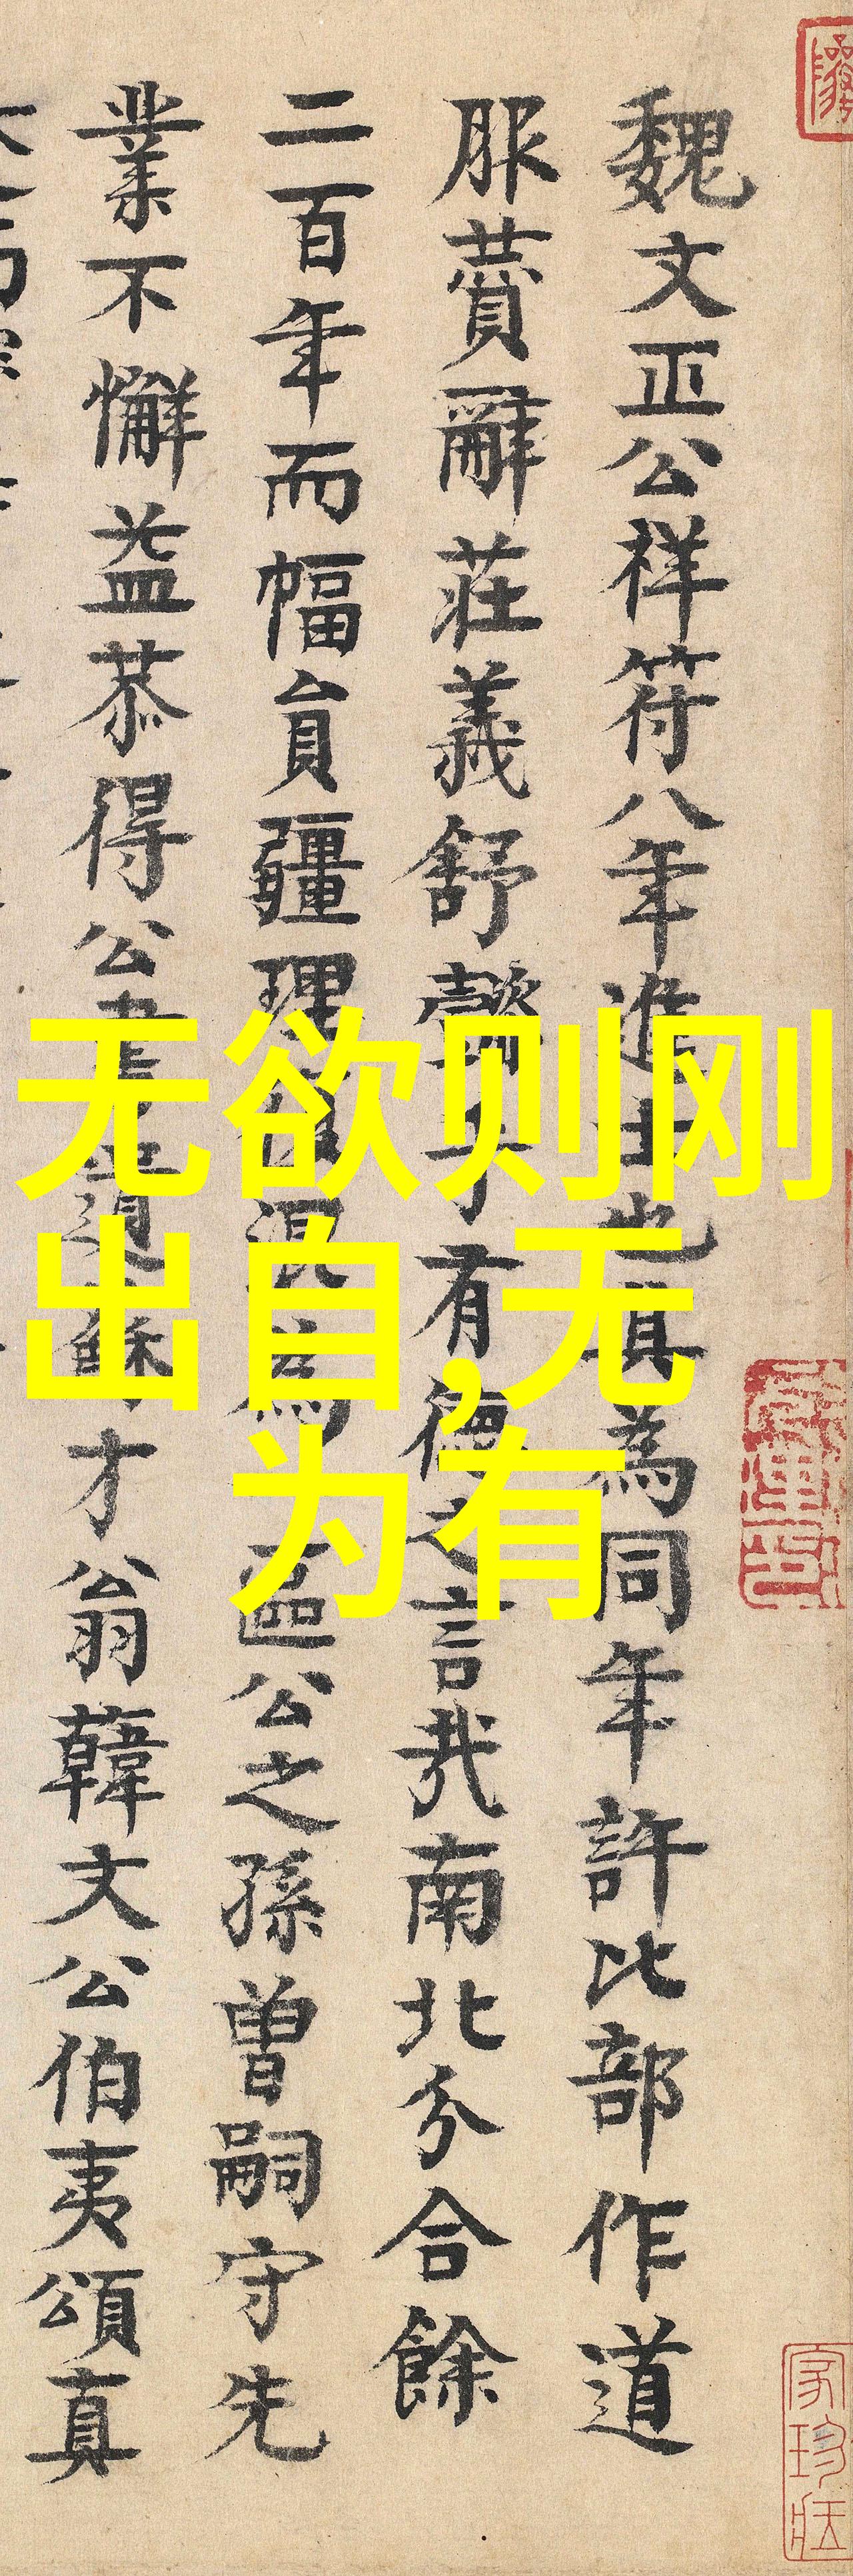 魏文正公祥符八年進士也真為同年許比部作道
服薲辭莊義舒 乎有德之言哉南北分合餘
二百年而幅員疆理 混為 區公之孫曾嗣守先
業不懈益恭得公書道 才翁韓文公伯夷頌真
无欲则刚
出自,无
为有